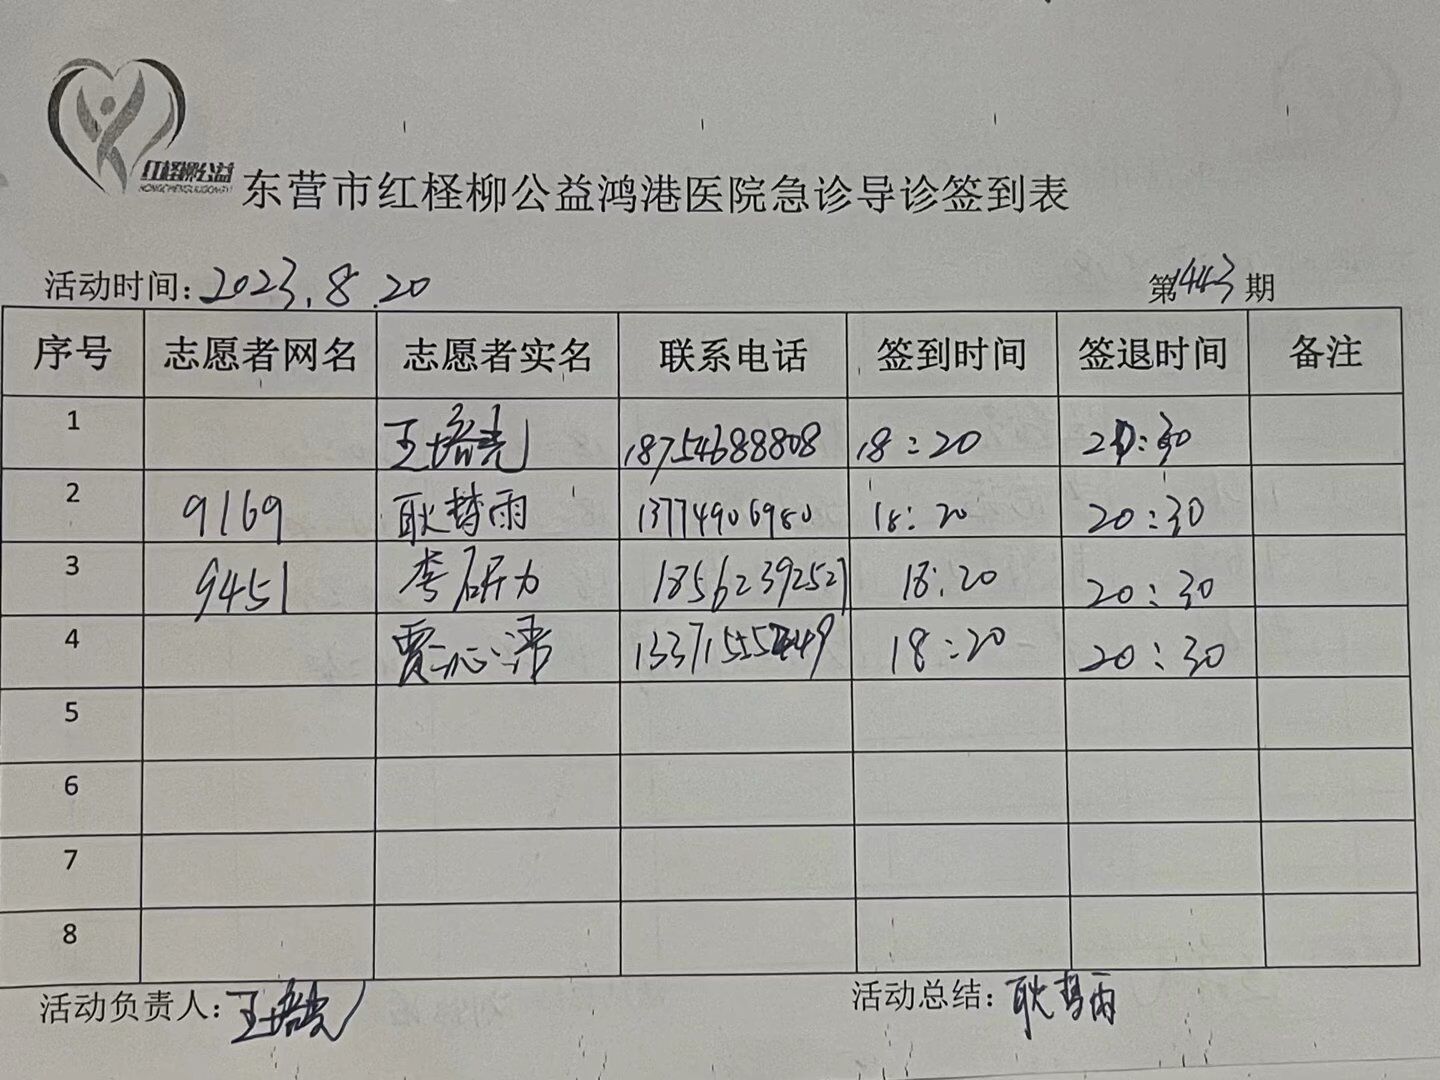 红柽柳公益
HONGCHENGLIUGONGYI
东营市红柽柳公益鸿港医院急诊导诊签到表
活动时间：2023.8.20 第1443期
序号 志愿者网名 志愿者实名 联系电话 签到时间 签退时间 备注
1 王培亮 18754688808 18:20 20:30
2 9169 耿梦雨 13774906980 18:20 20:30
3 9451 李研力 18562392521 18:20 20:30
4 贾沁 18:20 20:30
5
6
7
8
活动负责人：王培亮 活动总结：耿梦雨